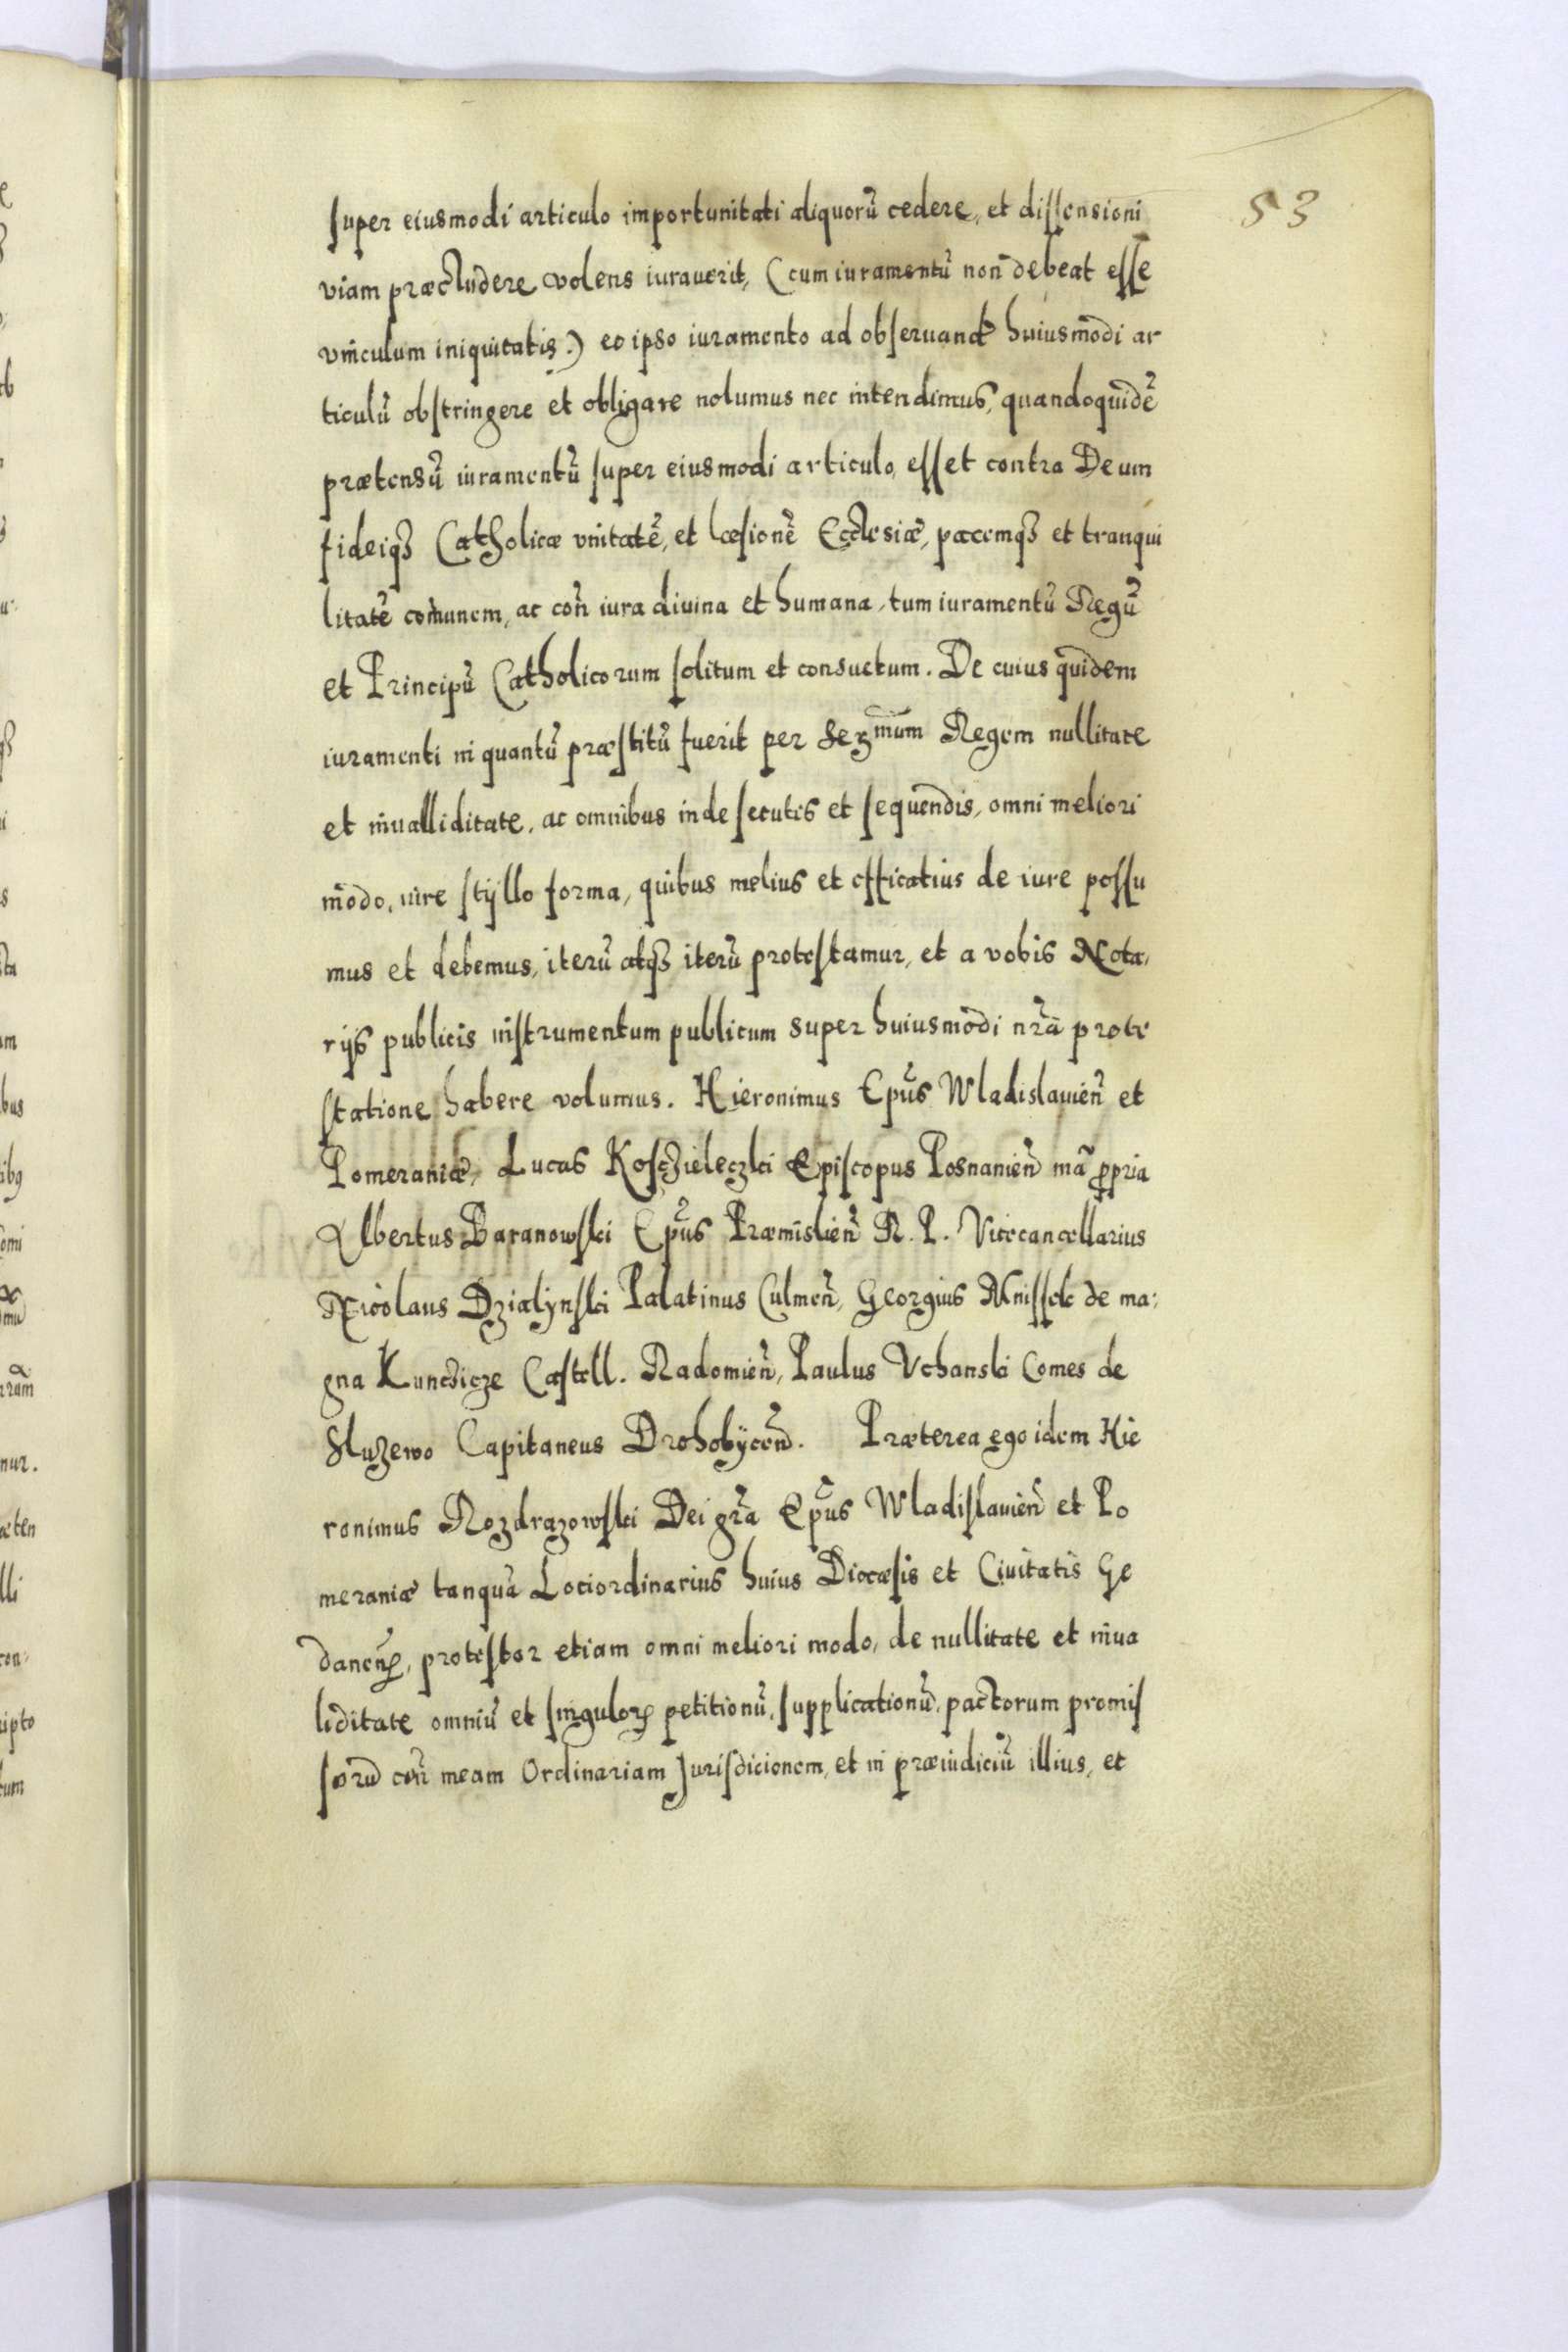 53
super eiusmodi articulo importunitati aliquorũ cedere, et dissensioni
viam præcludere volens iurauerit, (cum iuramentũ non debeat esse
vinculum iniquitatis.) eo ipso iuramento ad obseruand' huiusmodi ar
ticulũ obstringere et obligare nolumus nec intendimus, quandoquidẽ
prætensũ iuramentũ super eiusmodi articulo, esset contra Deum
fideiq3 Catholicæ vnitatẽ, et læsionẽ Ecclesiæ, pacemq3 et tranqui
litatẽ comunem, ac coñ iura diuina et humana, tum iuramentũ Regũ
et Principũ Catholicorum solitum et consuetum. De cuius quidem
iuramenti in quantũ præstitũ fuerit per Sermum Regem nullitate
et inualliditate, ac omnibus inde secutis et sequendis, omni meliori
modo, iure styllo forma, quibus melius et efficatius de iure possu
mus et debemus, iterũ atq3 iterũ protestamur, et a vobis Nota,
rijs publicis instrumentum publicum super huiusmodi nrã prote
statione habere volumus. Hieronimus Epũs Wladislauieñ et
Pomeraniæ, Lucas Kosczieleczki Episcopus Posnanieñ mã ppria
Albertus Baranowski Epũs Præmislieñ R. P. Vicecancellarius
Nicolaus Dzialynski Palatinus Culmeñ, Georgius Mnissek de ma:
gna Kunczicze Castell. Radomieñ, Paulus Vchanski Comes de
Sluzewo Capitaneus Drohobÿceñ. Præterea ego idem Hie
ronimus Rozdrazowski Dei grã Epũs Wladislauieñ et Po
meraniæ tanquã Lociordinarius huius Diocæsis et Ciuitatis Ge
daneñ, protestor etiam omni meliori modo, de nullitate et inua
liditate omniũ et singulorꝝ petitionũ, supplicationũ, pactorum promis
sorũ coñ meam Ordinariam Jurisdicionem, et in præiudiciũ illius, et